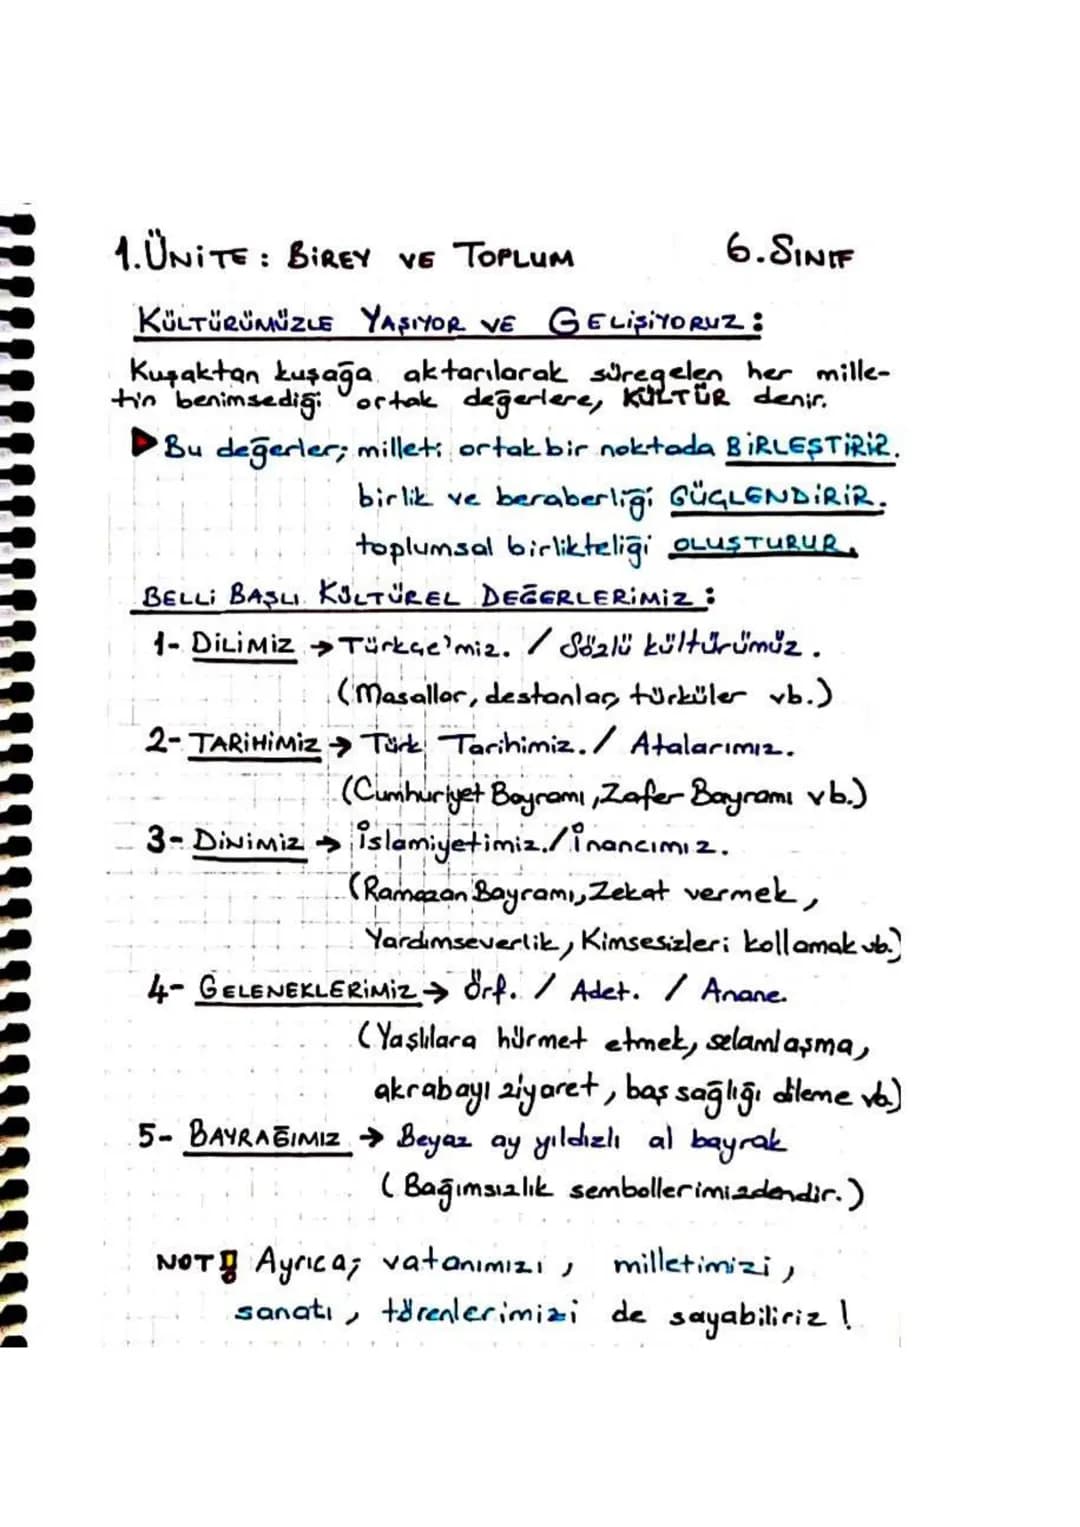 1.ÜNİTE: BİREY VE TOPLUM 6.SINIF
KÜLTÜRÜMÜZLE YAŞIYOR VE GELİŞİYORUZ:
Kuşaktan kuşağa aktarılarak süregelen her mille-
tin benimsediği ortak değerlere, KÜLTÜR denir.
▶Bu değerler; milleti ortak bir noktada BİRLEŞTİRİR.
birlik ve beraberliği GÜÇLENDİRİR.
toplumsal birlikteliği OLUŞTURUR.
BELLİ BAŞLI KÜLTÜREL DEĞERLERİMİZ:
1- DİLİMİZ → Türkçe'miz. / Sözlü kültürümüz.
(Masallar, destanlar, türküler vb.)
2- TARİHİMİZ → Türk Tarihimiz. / Atalarımız.
(Cumhuriyet Bayramı, Zafer Bayramı vb.)
3- DİNİMİZ → İslamiyetimiz./İnancımız.
(Ramazan Bayramı, Zekat vermek,
Yardımseverlik, Kimsesizleri kollamak vb.)
4- GELENEKLERİMİZ → Örf. / Adet. / Anane.
(Yaşlılara hürmet etmek, selamlaşma,
akrabayı ziyaret, baş sağlığı dileme vb.)
5- BAYRAĞIMIZ → Beyaz ay yıldızlı al bayrak
(Bağımsızlık sembollerimizdendir.)
NOT! Ayrıca; vatanımızı, milletimizi,
sanatı, törenlerimizi de sayabiliriz!